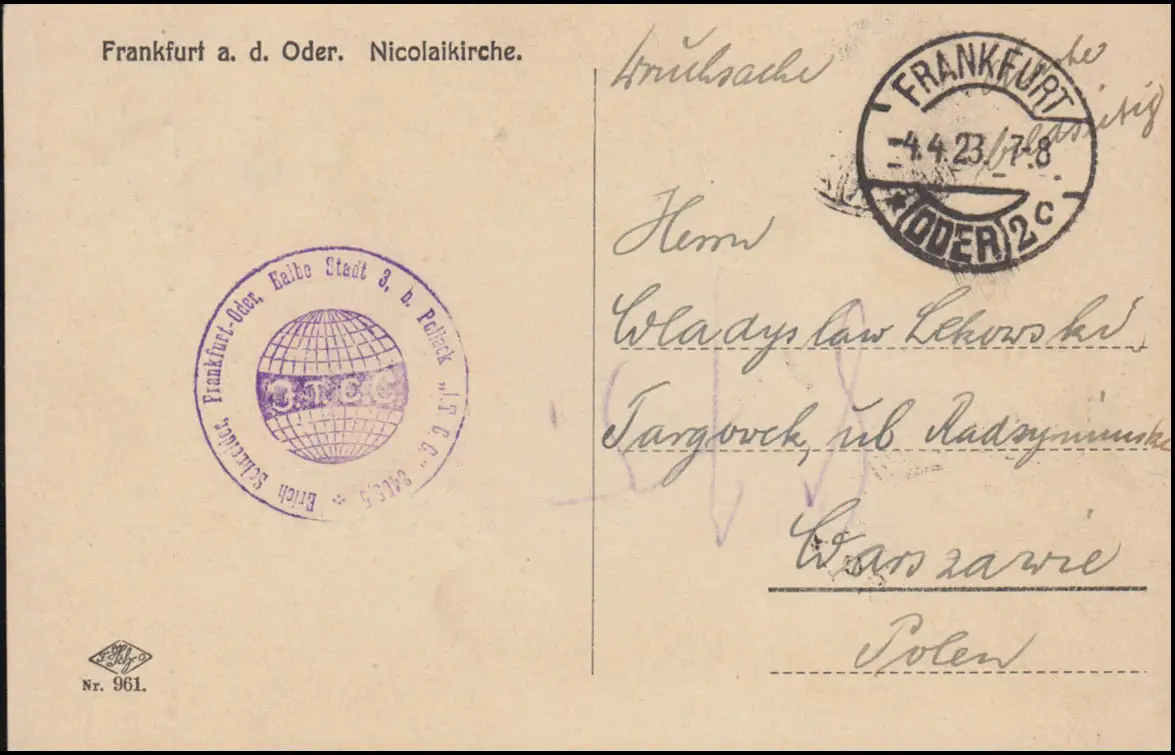 Frankfurt a. d. Oder. Nicolaikirche.
Drucksache
siehe
bildseitig
FRANKFURT
-4.4.23. 7-8
* (ODER) 2c
Erich Schneider, Frankfurt-Oder, Halbe Stadt 3, b. Pollack „I.T.C.C." 8465,5 *
J.T.C.C.
Herrn
Wladyslaw Lekowski
Targovek, ul. Radzyminske
Warszawie
Polen
Nr. 961.